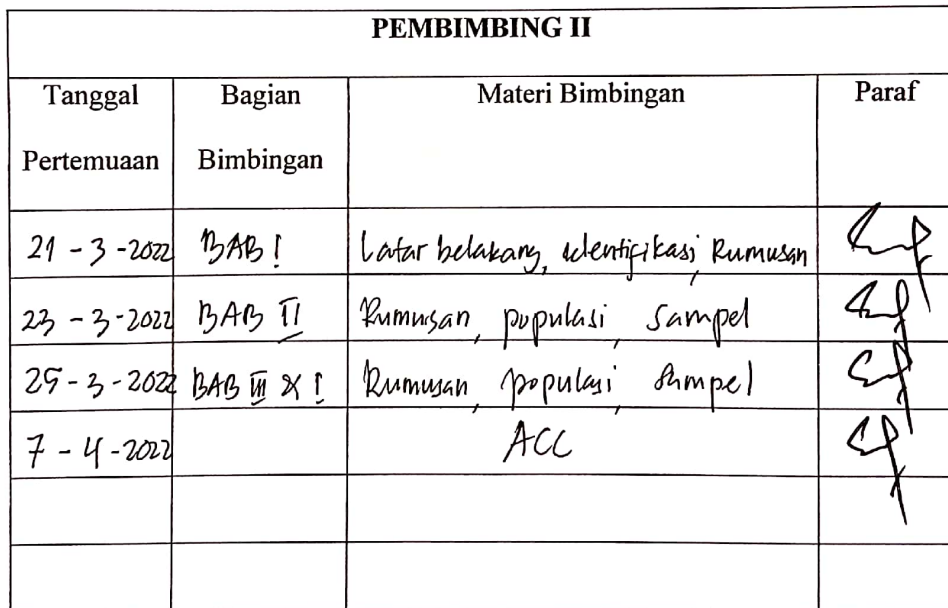 PEMBIMBING II
Tanggal Pertemuaan Bagian Bimbingan Materi Bimbingan Paraf
21 - 3 - 2022 BAB I Latar belakang, identifikasi, Rumusan
23 - 3 - 2022 BAB II Rumusan, populasi, Sampel
25 - 3 - 2022 BAB III & I Rumusan, populasi, Sampel
7 - 4 - 2022 ACC